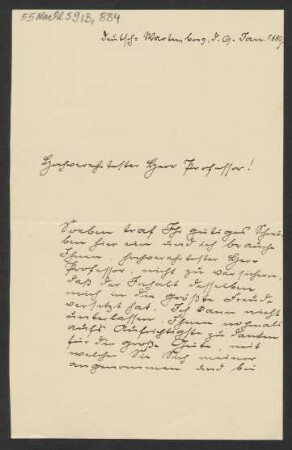 55 Nachl 59/B, 884
Deutsch-Wartenberg, d. 9. Jan. 1889.
Hochverehrtester Herr Professor!
Soeben traf Ihr gütiges Schrei-
ben hier ein und ich brauche
Ihnen, hochverehrtester Herr
Professor, nicht zu versichern,
daß der Inhalt desselben
mich in die größte Freude
versetzt hat. Ich kann nicht
unterlassen, Ihnen nochmals
aufs Aufrichtigste zu danken
für die große Güte, mit
welcher Sie Sich meiner
angenommen und bei